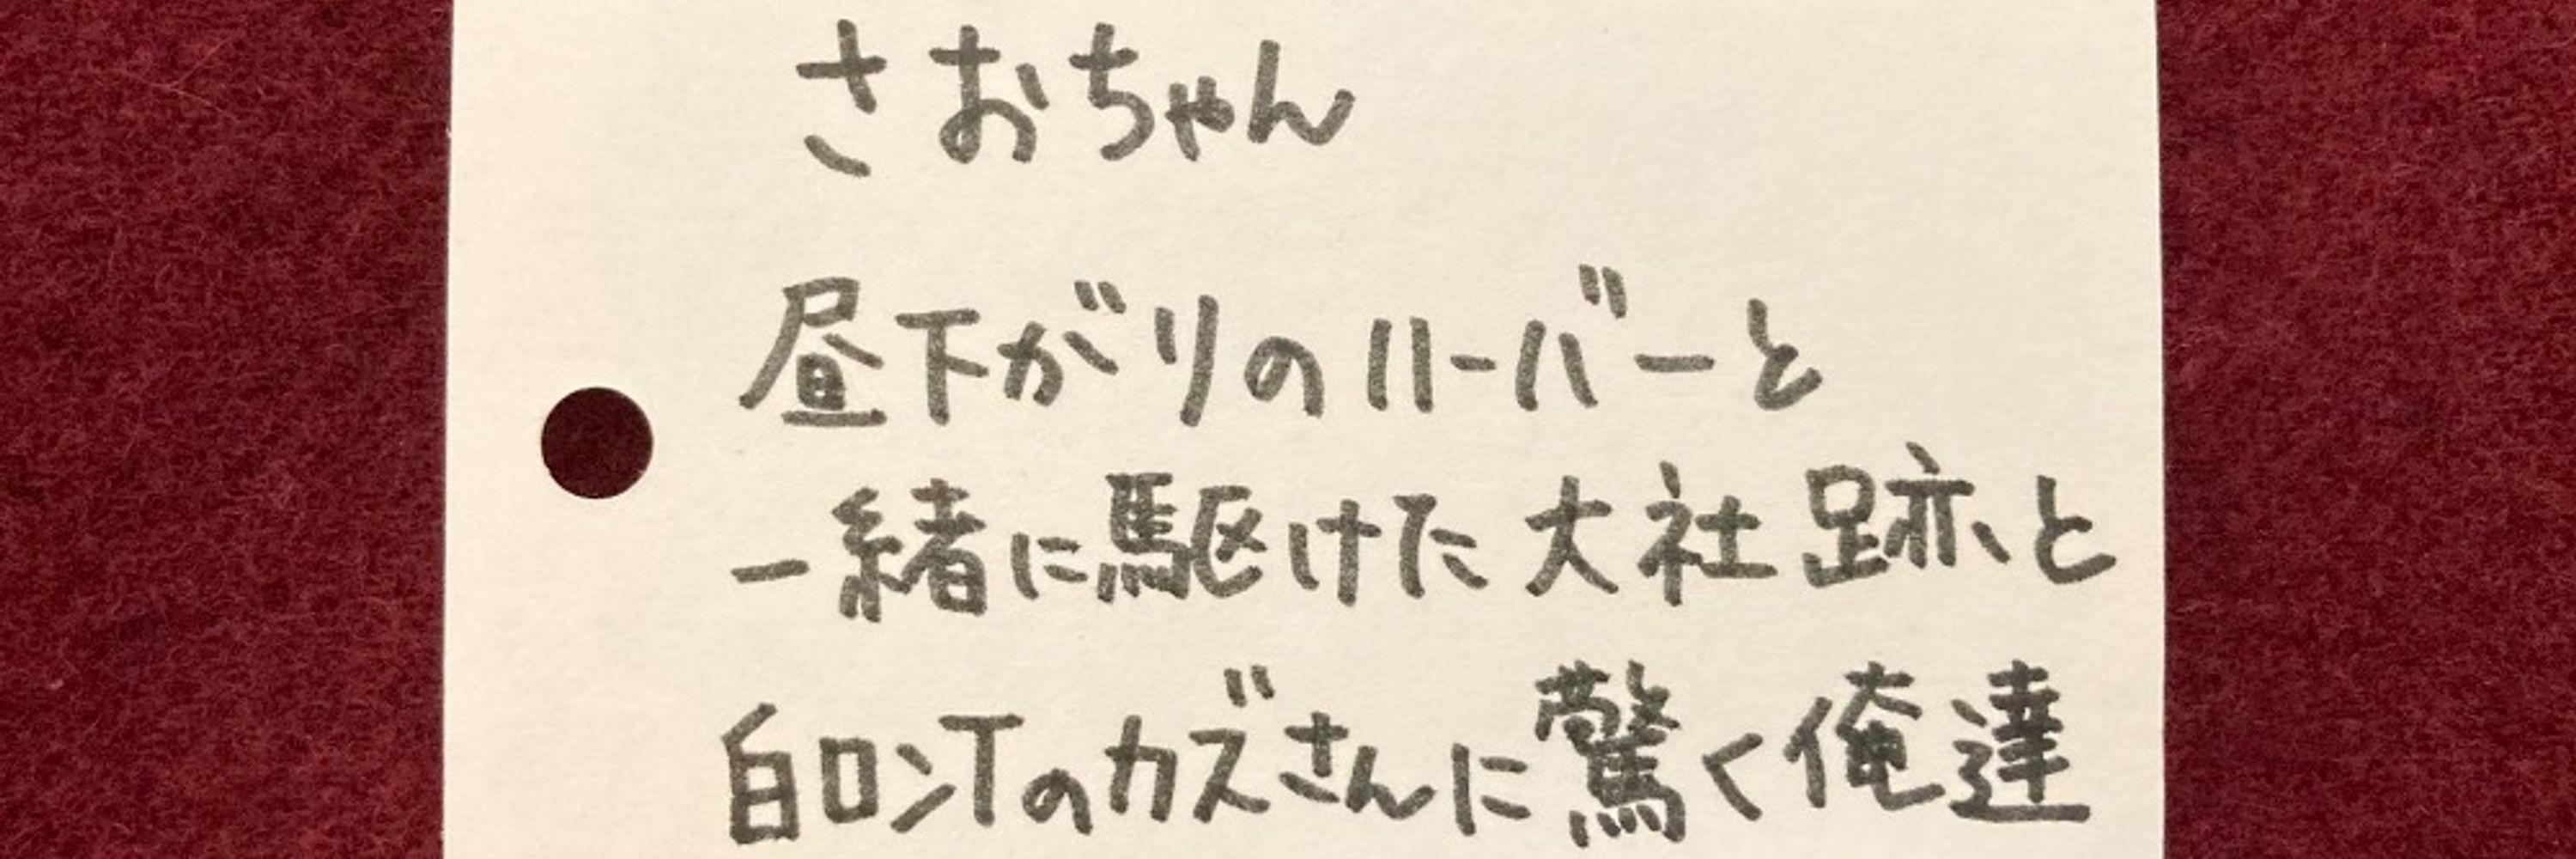 さおちゃん
昼下がりのハーバーと
一緒に駆けた大社跡と
白ロンTのカズさんに驚く俺達